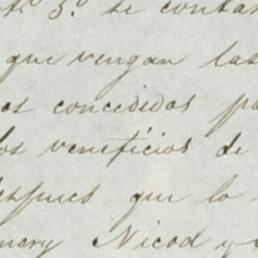 5.º se contas
que vengan las
es concedidas pa
los veneficios de
espues que lo
mery Nicod y